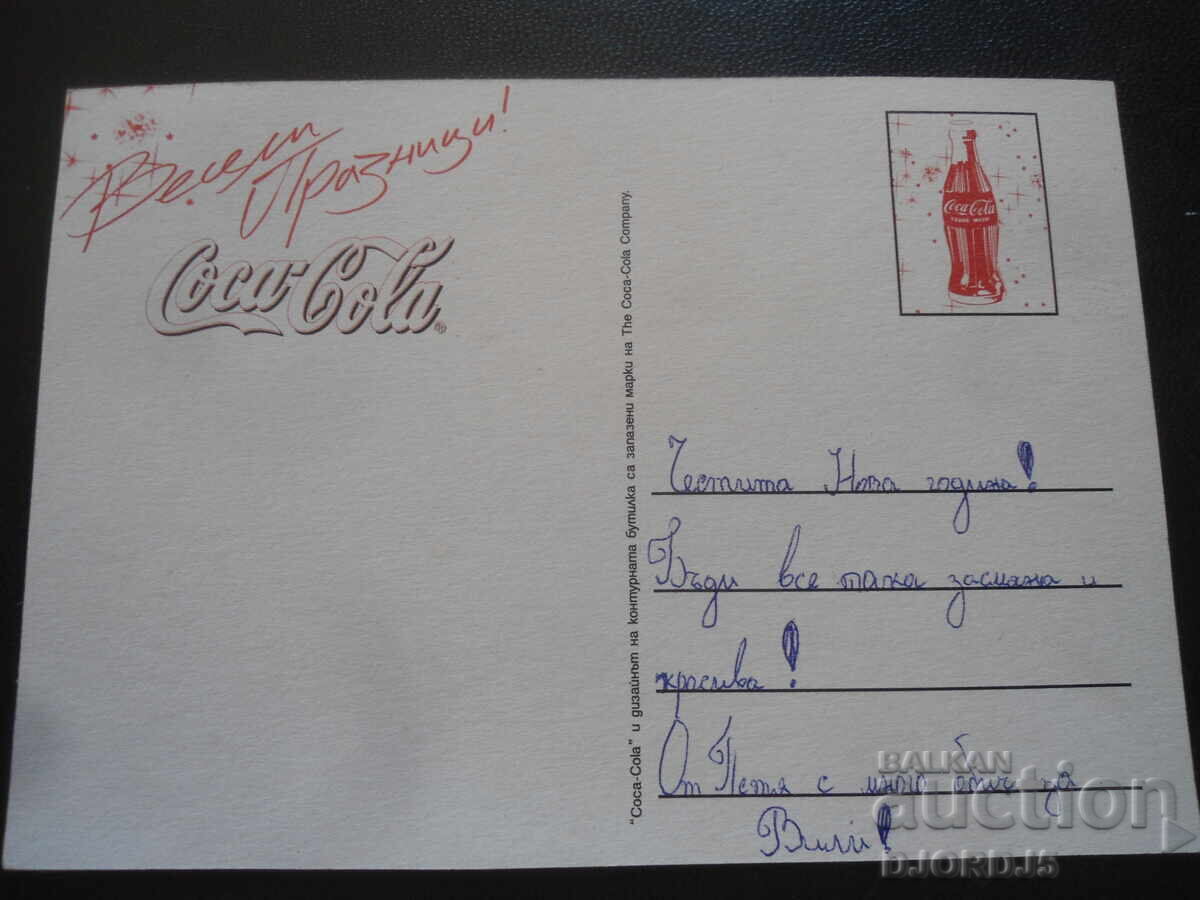 Весели
Празници!
Coca-Cola®
"Coca-Cola" и дизайнът на контурната бутилка са запазени марки на The Coca-Cola Company.
Coca-Cola
TRADE MARK
Честита Нова година!
Бъди все така засмяна и
красива!
От Петя с много обич за
Вили!
BALKAN
auction
DJORDJ5